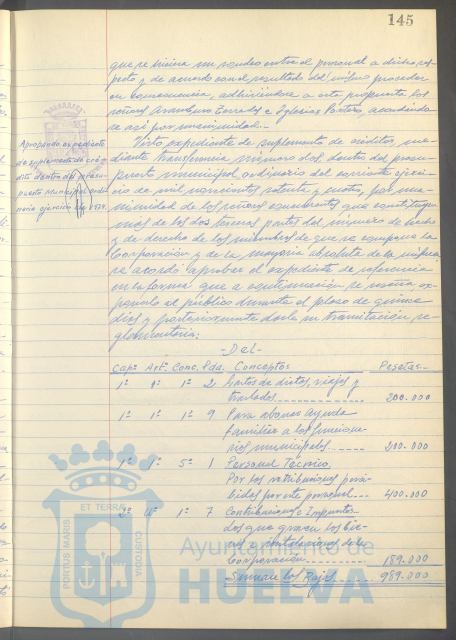 145
que se hiciera un sondeo entre el personal a dicho res-
pecto y de acuerdo con el resultado del mismo proceder
en consecuencia, adhiriéndose a esta propuesta los
señores Aramburo Terrades e Iglesias Pastero, acordándo-
se así por unanimidad.-
Aprobando expediente
de suplemento de cré-
dito dentro del presu-
puesto Municipal ordi-
nario ejercicio de 1974.
Visto expediente de suplemento de créditos, me-
diante transferencia número dos, dentro del presu-
puesto municipal ordinario del corriente ejerci-
cio de mil novecientos setenta y cuatro, por una-
nimidad de los señores concurrentes que constituyen
más de las dos terceras partes del número de hecho
y de derecho de los miembros de que se compone la
Corporación y de la mayoría absoluta de la misma
se acordó aprobar el expediente de referencia
en la forma que a continuación se reseña, ex-
ponerlo al público durante el plazo de quince
días y posteriormente darle su tramitación re-
glamentaria:
-Del-
Cap.º Art.º Conc. Pda. Conceptos Pesetas.-
1º 1º 1º 2 Gastos de dietas, viajes y
traslados 200.000
1º 1º 1º 9 Para abonar ayuda
familiar a los funciona-
rios municipales 200.000
1º 1º 5º 1 Personal Técnico,
Por las retribuciones perci-
bidas por este personal 400.000
2º 1º 7 Contribuciones e Impuestos
que gravan los bie-
nes e instalaciones de la
Corporación 189.000
Suman las Bajas 989.000
PORTUS MARIS ET TERRÆ CUSTODIA
Ayuntamiento de
HUELVA